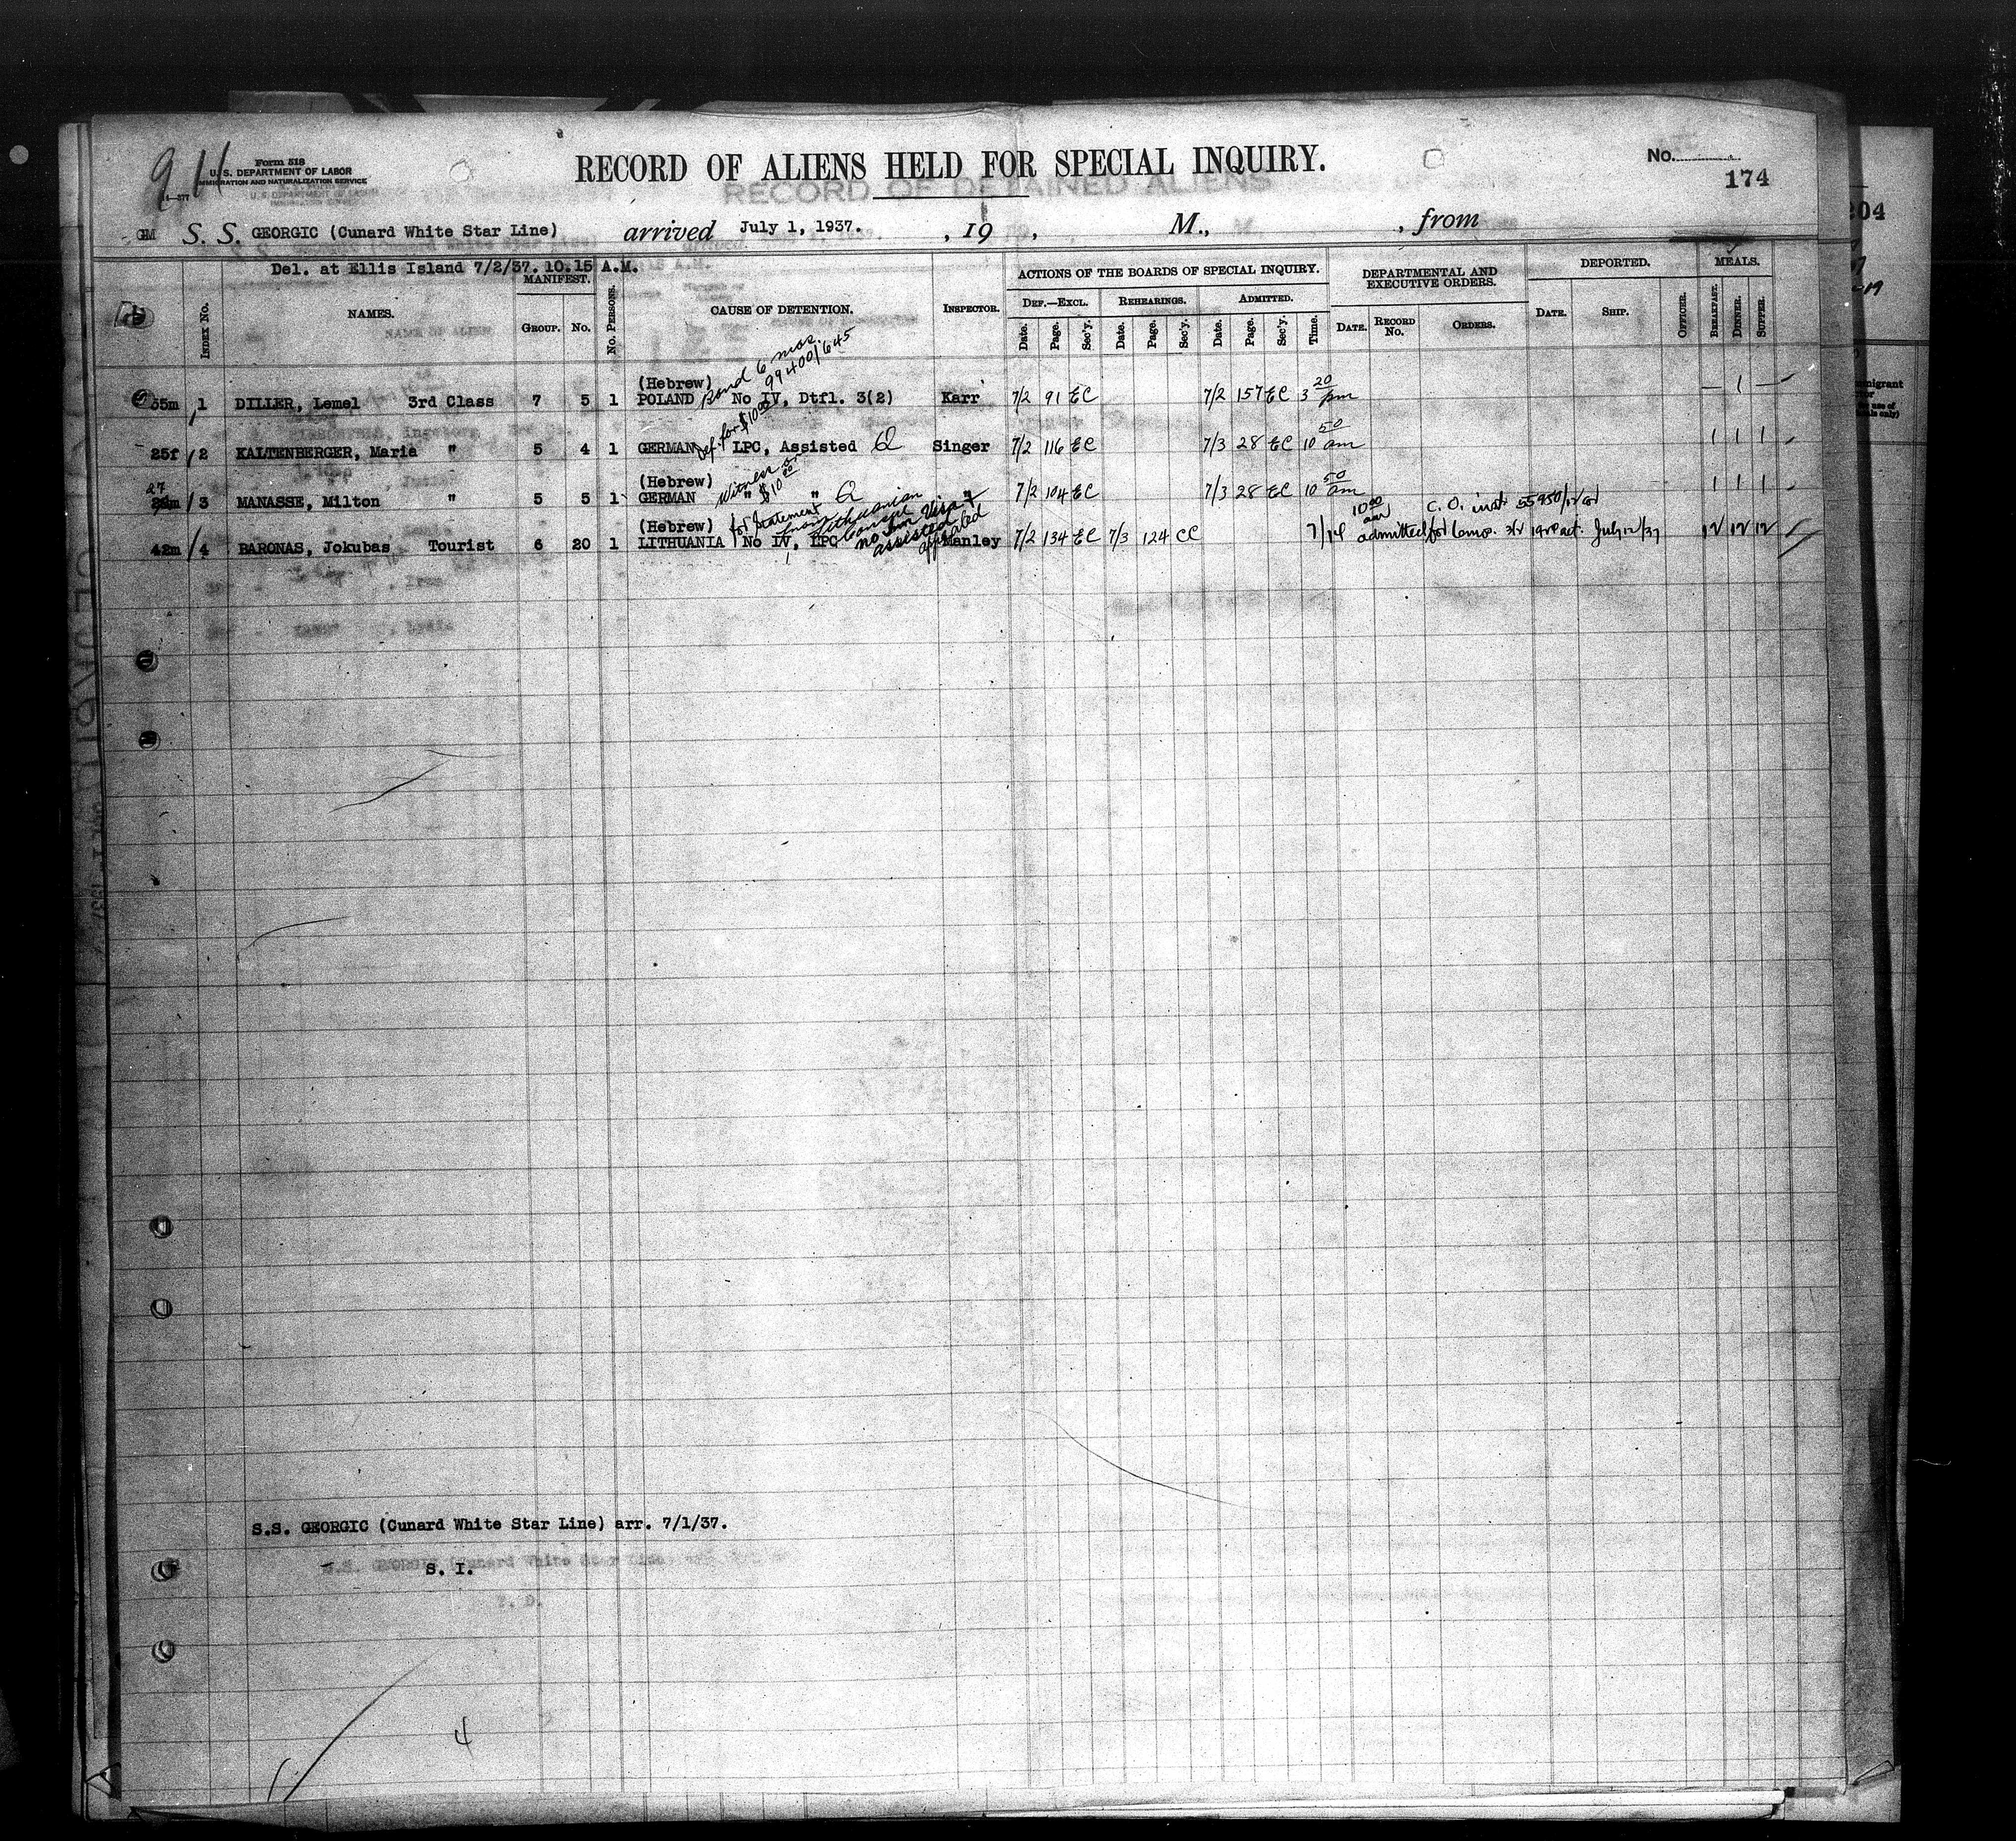 911
Form 518
U. S. DEPARTMENT OF LABOR
IMMIGRATION AND NATURALIZATION SERVICE
14—577
RECORD OF ALIENS HELD FOR SPECIAL INQUIRY.
RECORD OF DETAINED ALIENS
No.
174
GM S. S. GEORGIC (Cunard White Star Line) arrived July 1, 1937. , 19 , M., , from
Del. at Ellis Island 7/2/37. 10.15 A.M.
INDEX No. NAMES. MANIFEST. GROUP. No. No. PERSONS. CAUSE OF DETENTION. INSPECTOR. ACTIONS OF THE BOARDS OF SPECIAL INQUIRY. DEF.—EXCL. REHEARINGS. ADMITTED. DEPARTMENTAL AND EXECUTIVE ORDERS. DEPORTED. MEALS.
Date. Page. Sec'y. Date. Page. Sec'y. Date. Page. Sec'y. Time. DATE. RECORD No. ORDERS. DATE. SHIP. OFFICER. BREAKFAST. DINNER. SUPPER.
Bond 6 mos.
99400/645
(Hebrew)
35m 1 DILLER, Lemel 3rd Class 7 5 1 POLAND No IV, Dtfl. 3(2) Karr 7/2 91 EC 7/2 157 EC 3 20 pm — 1 —
Def. for $10.00
25f 2 KALTENBERGER, Maria " 5 4 1 GERMAN LPC, Assisted Singer 7/2 116 EC 7/3 28 EC 10 50 am 1 1 1
(Hebrew) Witness or $10.00
27
3 MANASSE, Milton " 5 5 1 GERMAN " " " 7/2 104 EC 7/3 28 EC 10 50 am 1 1 1
(Hebrew) for statement from Lithuanian Consul
no non Visa
assisted
appealed
42m 4 BARONAS, Jokubas Tourist 6 20 1 LITHUANIA No IV, LPC Manley 7/2 134 EC 7/3 124 CC 7/14 10 00 am C. O. inst 55950/
admitted for temp. 3(2) 1924 act. July 12/37 12 12 12
S.S. GEORGIC (Cunard White Star Line) arr. 7/1/37.
S. I.
T. D.
4
204